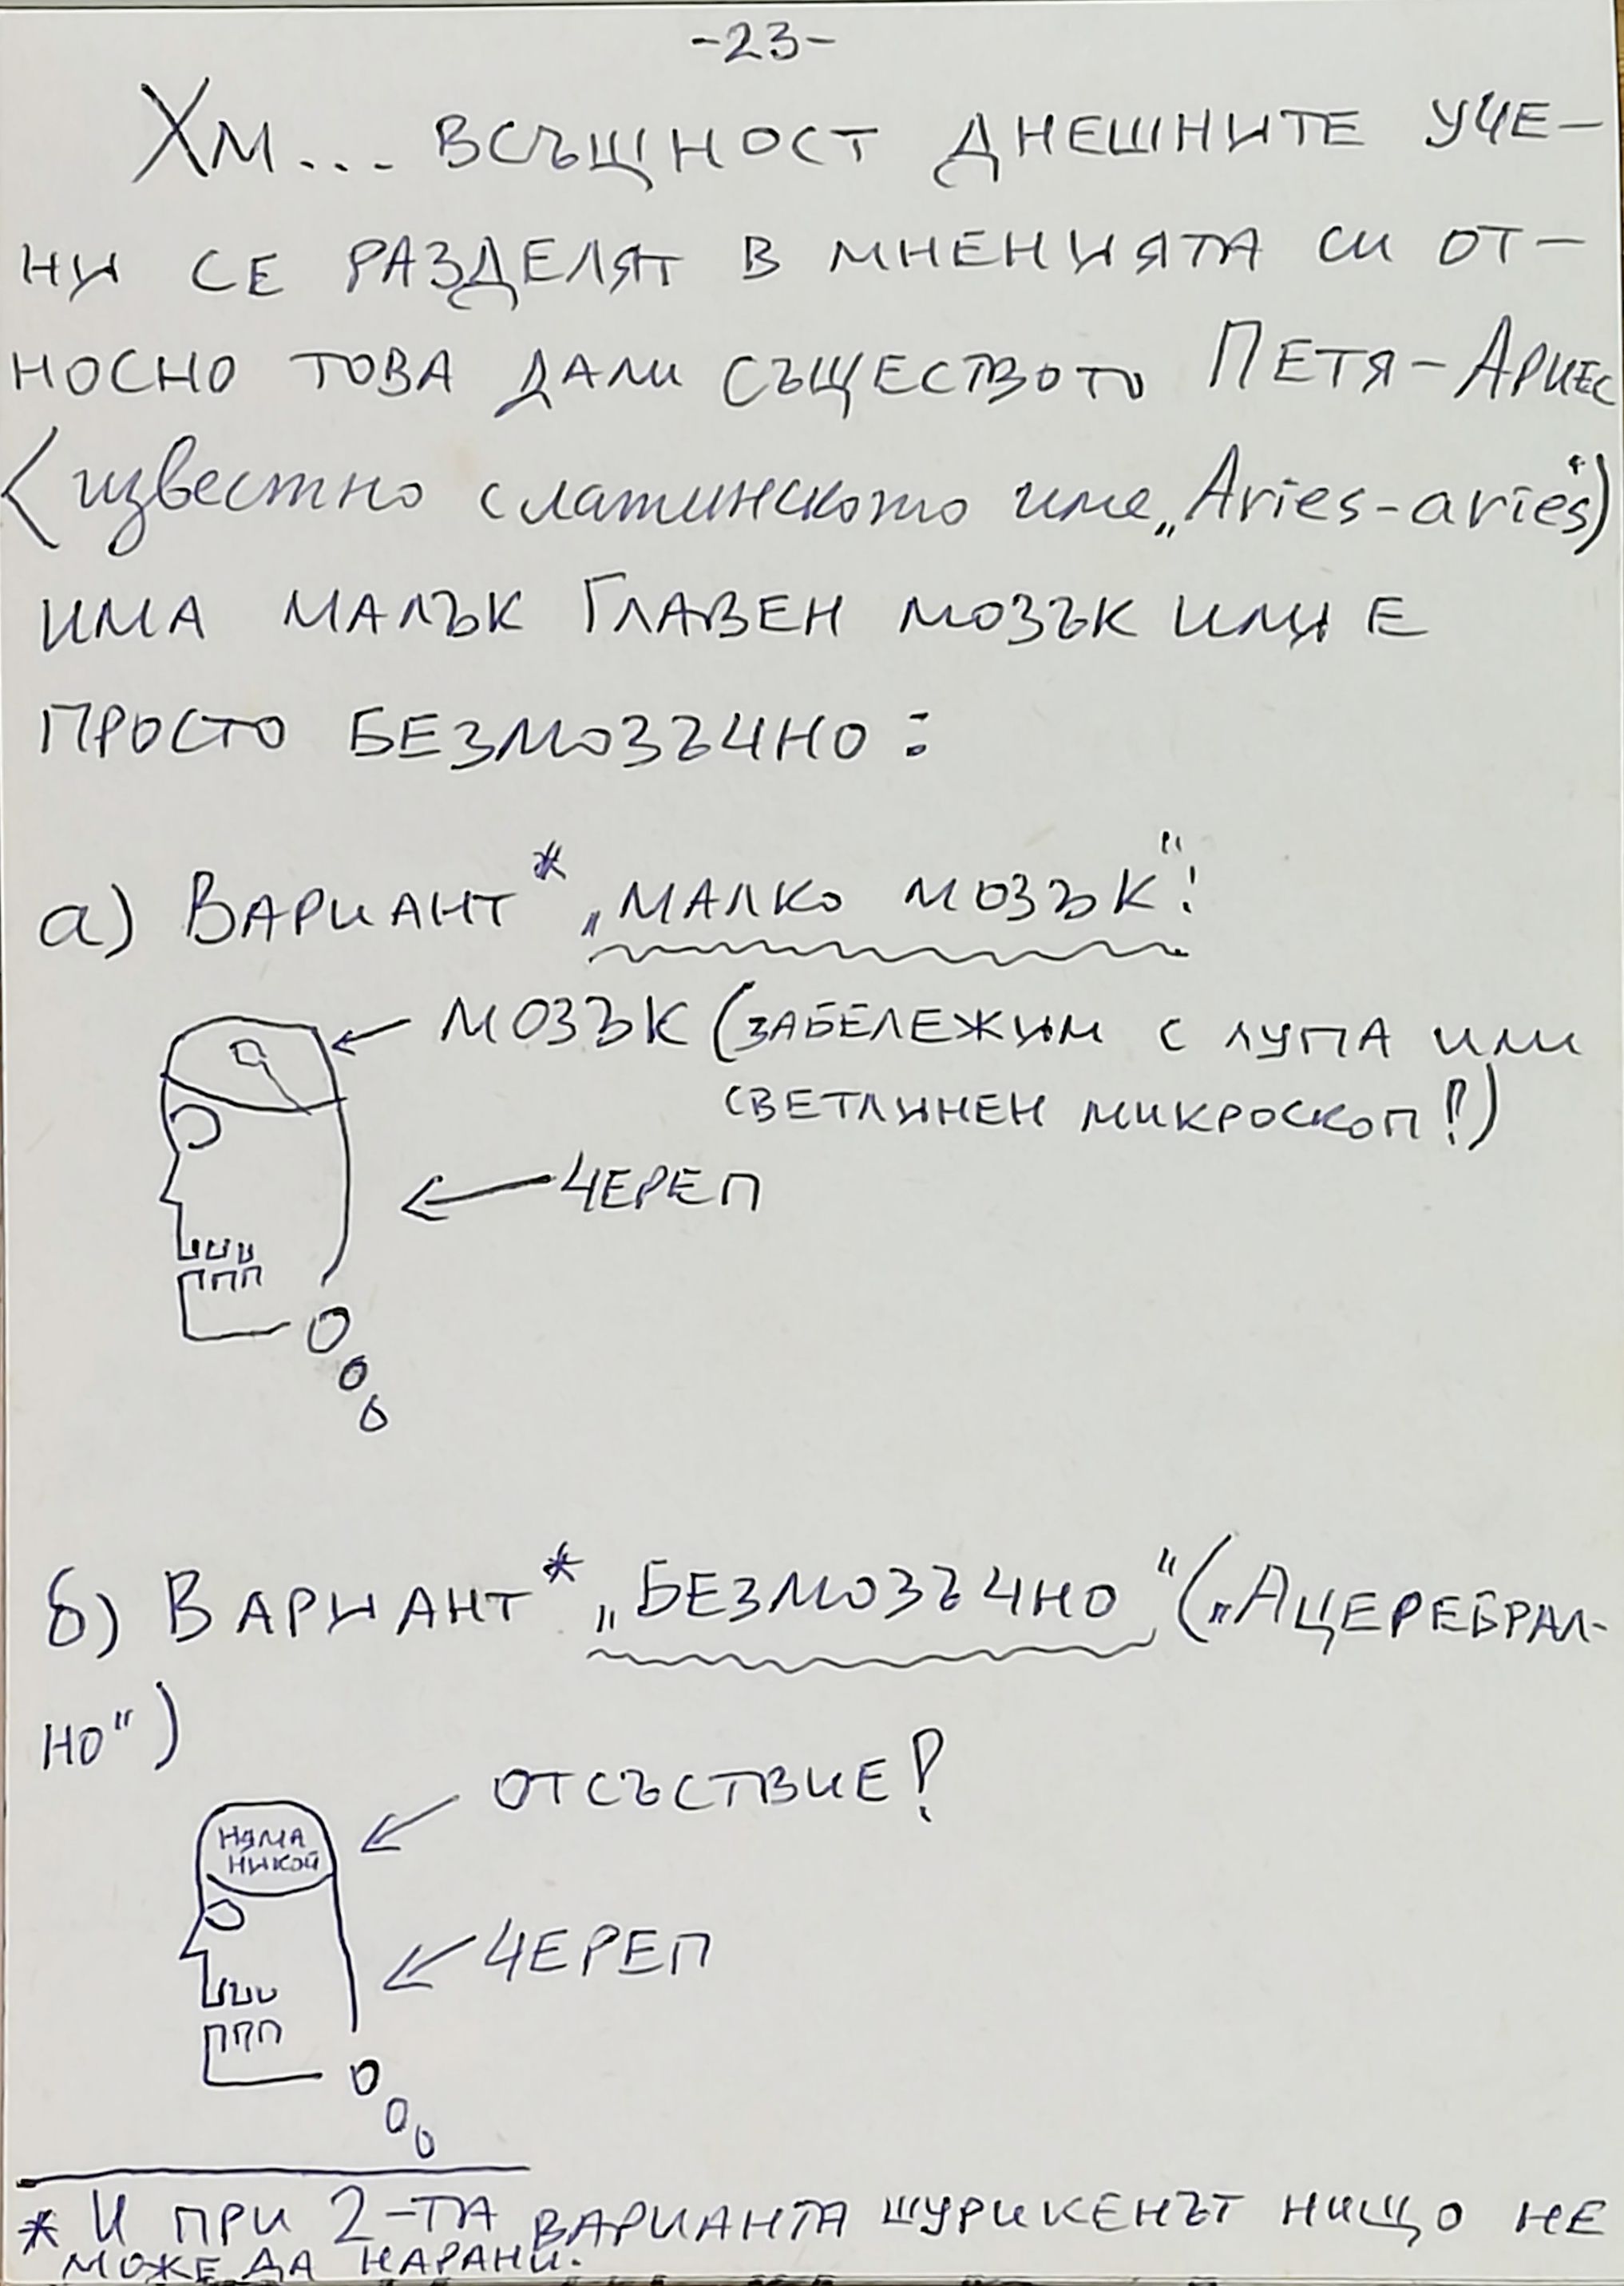 -23-
Хм... всъщност днешните уче-
ни се разделят в мненията си от-
носно това дали съществото Петя-Ариес
(известно с латинското име „Aries-aries“)
има малък Главен мозък или е
просто безмозъчно:
а) Вариант* „малко мозък“:
мозък (забележим с лупа или
светлинен микроскоп!?)
череп
б) Вариант* „Безмозъчно“ („Ацеребрал-
но“)
отсъствие!?
няма
никой
череп
* И при 2-та варианта шурикенът нищо не
може да нарани.